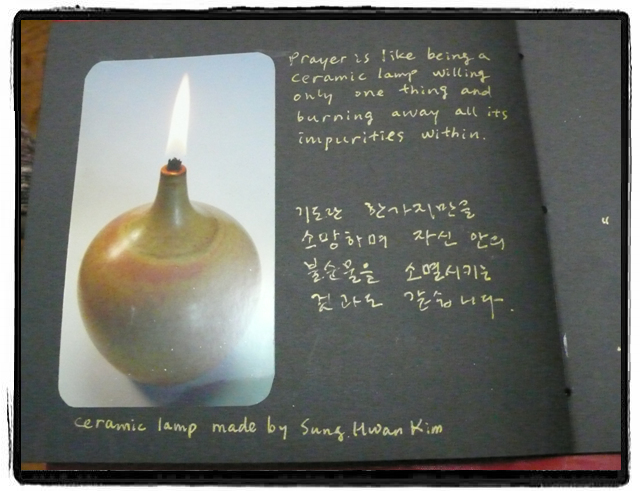 Prayer is like being a
ceramic lamp willing
only one thing and
burning away all its
impurities within.
기도란 한가지만을
소망하며 자신 안의
불순물을 소멸시키는
것과도 같습니다.
ceramic lamp made by Sung.Hwan Kim